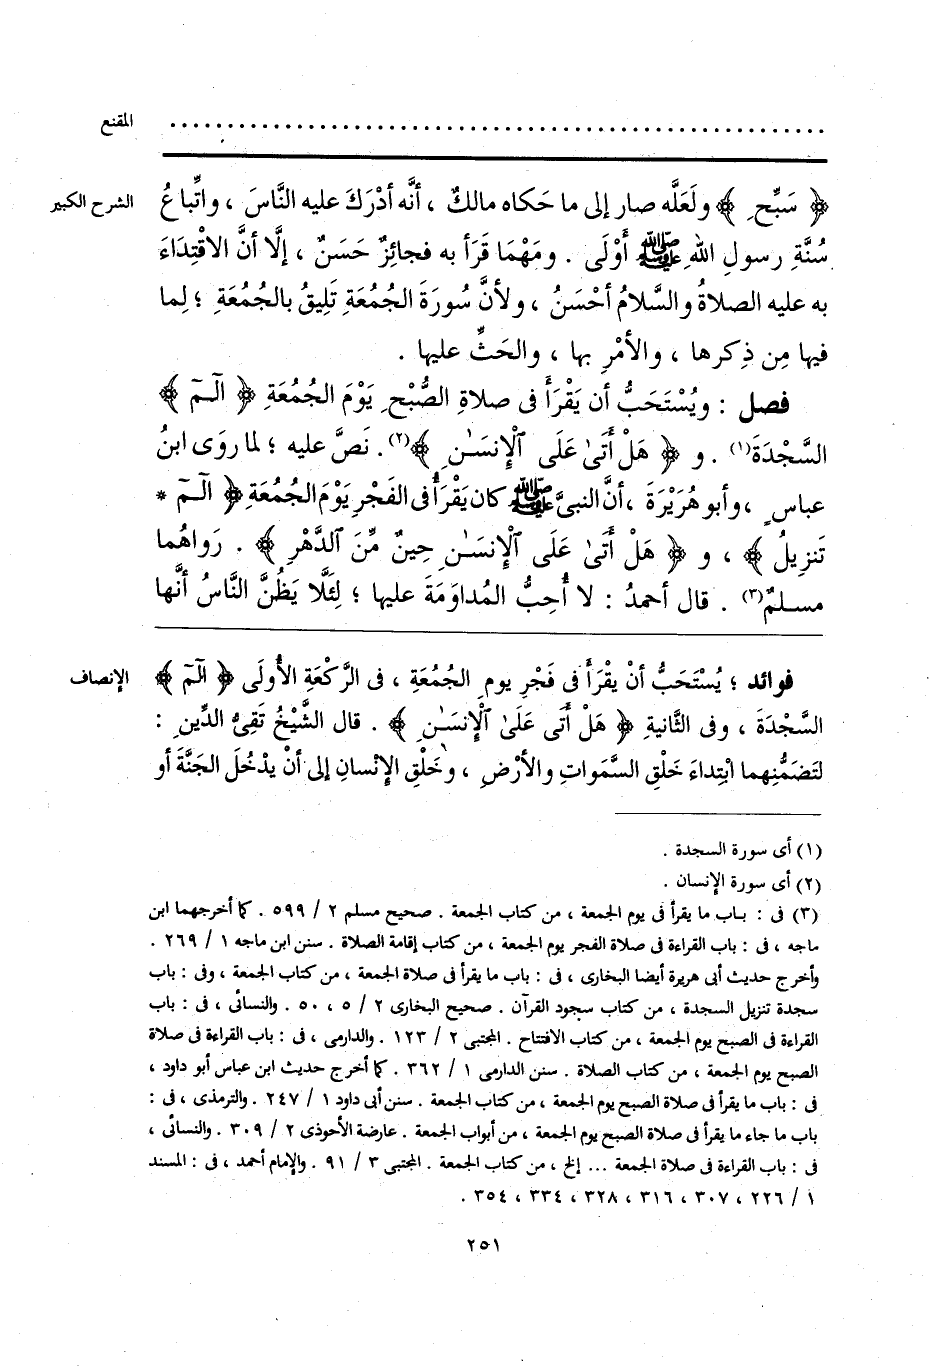 المقنع . . . . . . . . . . . . . . . . . . . . . . . . . . . . . . . . . . . . . . . . . . . . . . . . . . . . . . . . .
الشرح الكبير
﴿ سَبِّحِ ﴾ ولَعَلَّه صار إلى ما حَكاه مالكٌ ، أنَّه أدْرَكَ عليه النَّاسَ ، واتِّباعُ
سُنَّةِ رسولِ اللهِ ﷺ أَوْلَى . ومَهْمَا قَرَأ به فجائِزٌ حَسَنٌ ، إلَّا أنَّ الاقْتِدَاءَ
به عليه الصلاةُ والسَّلامُ أحْسَنُ ، ولأنَّ سُورَةَ الجُمُعَةِ تَلِيقُ بالجُمُعَةِ ؛ لِما
فيها مِن ذِكرِها ، والأمْرِ بها ، والحَثِّ عليها .
فصل : ويُسْتَحَبُّ أن يَقْرَأَ فى صلاةِ الصُّبْحِ يَوْمَ الجُمُعَةِ ﴿ الٓـمٓ ﴾
السَّجْدَةَ(١) . و ﴿ هَلْ أَتَىٰ عَلَى ٱلْإِنسَـٰنِ ﴾(٢) . نَصَّ عليه ؛ لما روَى ابنُ
عباسٍ ، وأبو هُرَيْرَةَ ، أنَّ النبىَّ ﷺ كان يَقْرَأُ فى الفَجْرِ يَوْمَ الجُمُعَةِ ﴿ الٓـمٓ *
تَنزِيلُ ﴾ ، و ﴿ هَلْ أَتَىٰ عَلَى ٱلْإِنسَـٰنِ حِينٌ مِّنَ ٱلدَّهْرِ ﴾ . رَواهُما
مسلمٌ(٣) . قال أحمدُ : لا أُحِبُّ المُداوَمَةَ عليها ؛ لِئَلَّا يَظُنَّ النَّاسُ أنَّها
الإنصاف
فوائد ؛ يُسْتَحَبُّ أنْ يقْرَأَ فى فَجْرِ يومِ الجُمُعَةِ ، فى الرَّكْعَةِ الأُولَى ﴿ الٓمٓ ﴾
السَّجْدَةَ ، وفى الثَّانيةِ ﴿ هَلْ أَتَى عَلَىٰ ٱلْإِنسَـٰنِ ﴾ . قال الشَّيْخُ تَقِىُّ الدِّينِ :
لتَضَمُّنِهما ابْتِداءَ خَلْقِ السَّمَواتِ والأرْضِ ، وخَلْقِ الإنْسانِ إلى أنْ يدْخُلَ الجَنَّةَ أو
(١) أى سورة السجدة .
(٢) أى سورة الإنسان .
(٣) فى : باب ما يقرأ فى يوم الجمعة ، من كتاب الجمعة . صحيح مسلم ٢ / ٥٩٩ . كما أخرجهما ابن
ماجه ، فى : باب القراءة فى صلاة الفجر يوم الجمعة ، من كتاب إقامة الصلاة . سنن ابن ماجه ١ / ٢٦٩ .
وأخرج حديث أبى هريرة أيضا البخارى ، فى : باب ما يقرأ فى صلاة الجمعة ، من كتاب الجمعة ، وفى : باب
سجدة تنزيل السجدة ، من كتاب سجود القرآن . صحيح البخارى ٢ / ٥ ، ٥٠ . والنسائى ، فى : باب
القراءة فى الصبح يوم الجمعة ، من كتاب الافتتاح . المجتبى ٢ / ١٢٣ . والدارمى ، فى : باب القراءة فى صلاة
الصبح يوم الجمعة ، من كتاب الصلاة . سنن الدارمى ١ / ٣٦٢ . كما أخرج حديث ابن عباس أبو داود ،
فى : باب ما يقرأ فى صلاة الصبح يوم الجمعة ، من كتاب الجمعة . سنن أبى داود ١ / ٢٤٧ . والترمذى ، فى :
باب ما جاء ما يقرأ فى صلاة الصبح يوم الجمعة ، من أبواب الجمعة . عارضة الأحوذى ٢ / ٣٠٩ . والنسائى ،
فى : باب القراءة فى صلاة الجمعة ... إلخ ، من كتاب الجمعة . المجتبى ٣ / ٩١ . والإمام أحمد ، فى : المسند
١ / ٢٢٦ ، ٣٠٧ ، ٣١٦ ، ٣٢٨ ، ٣٣٤ ، ٣٥٤ .
٢٥١